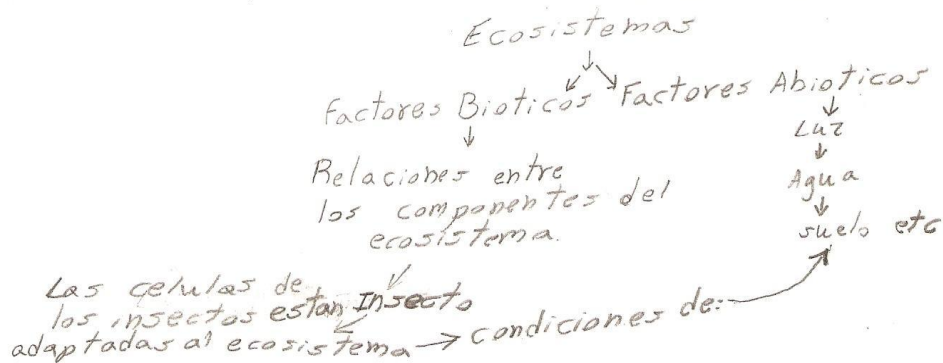 Ecosistemas
Factores Bioticos Factores Abioticos
Luz
Agua
suelo etc
Relaciones entre
los componentes del
ecosistema.
Insecto
Las celulas de
los insectos estan
adaptadas al ecosistema condiciones de: